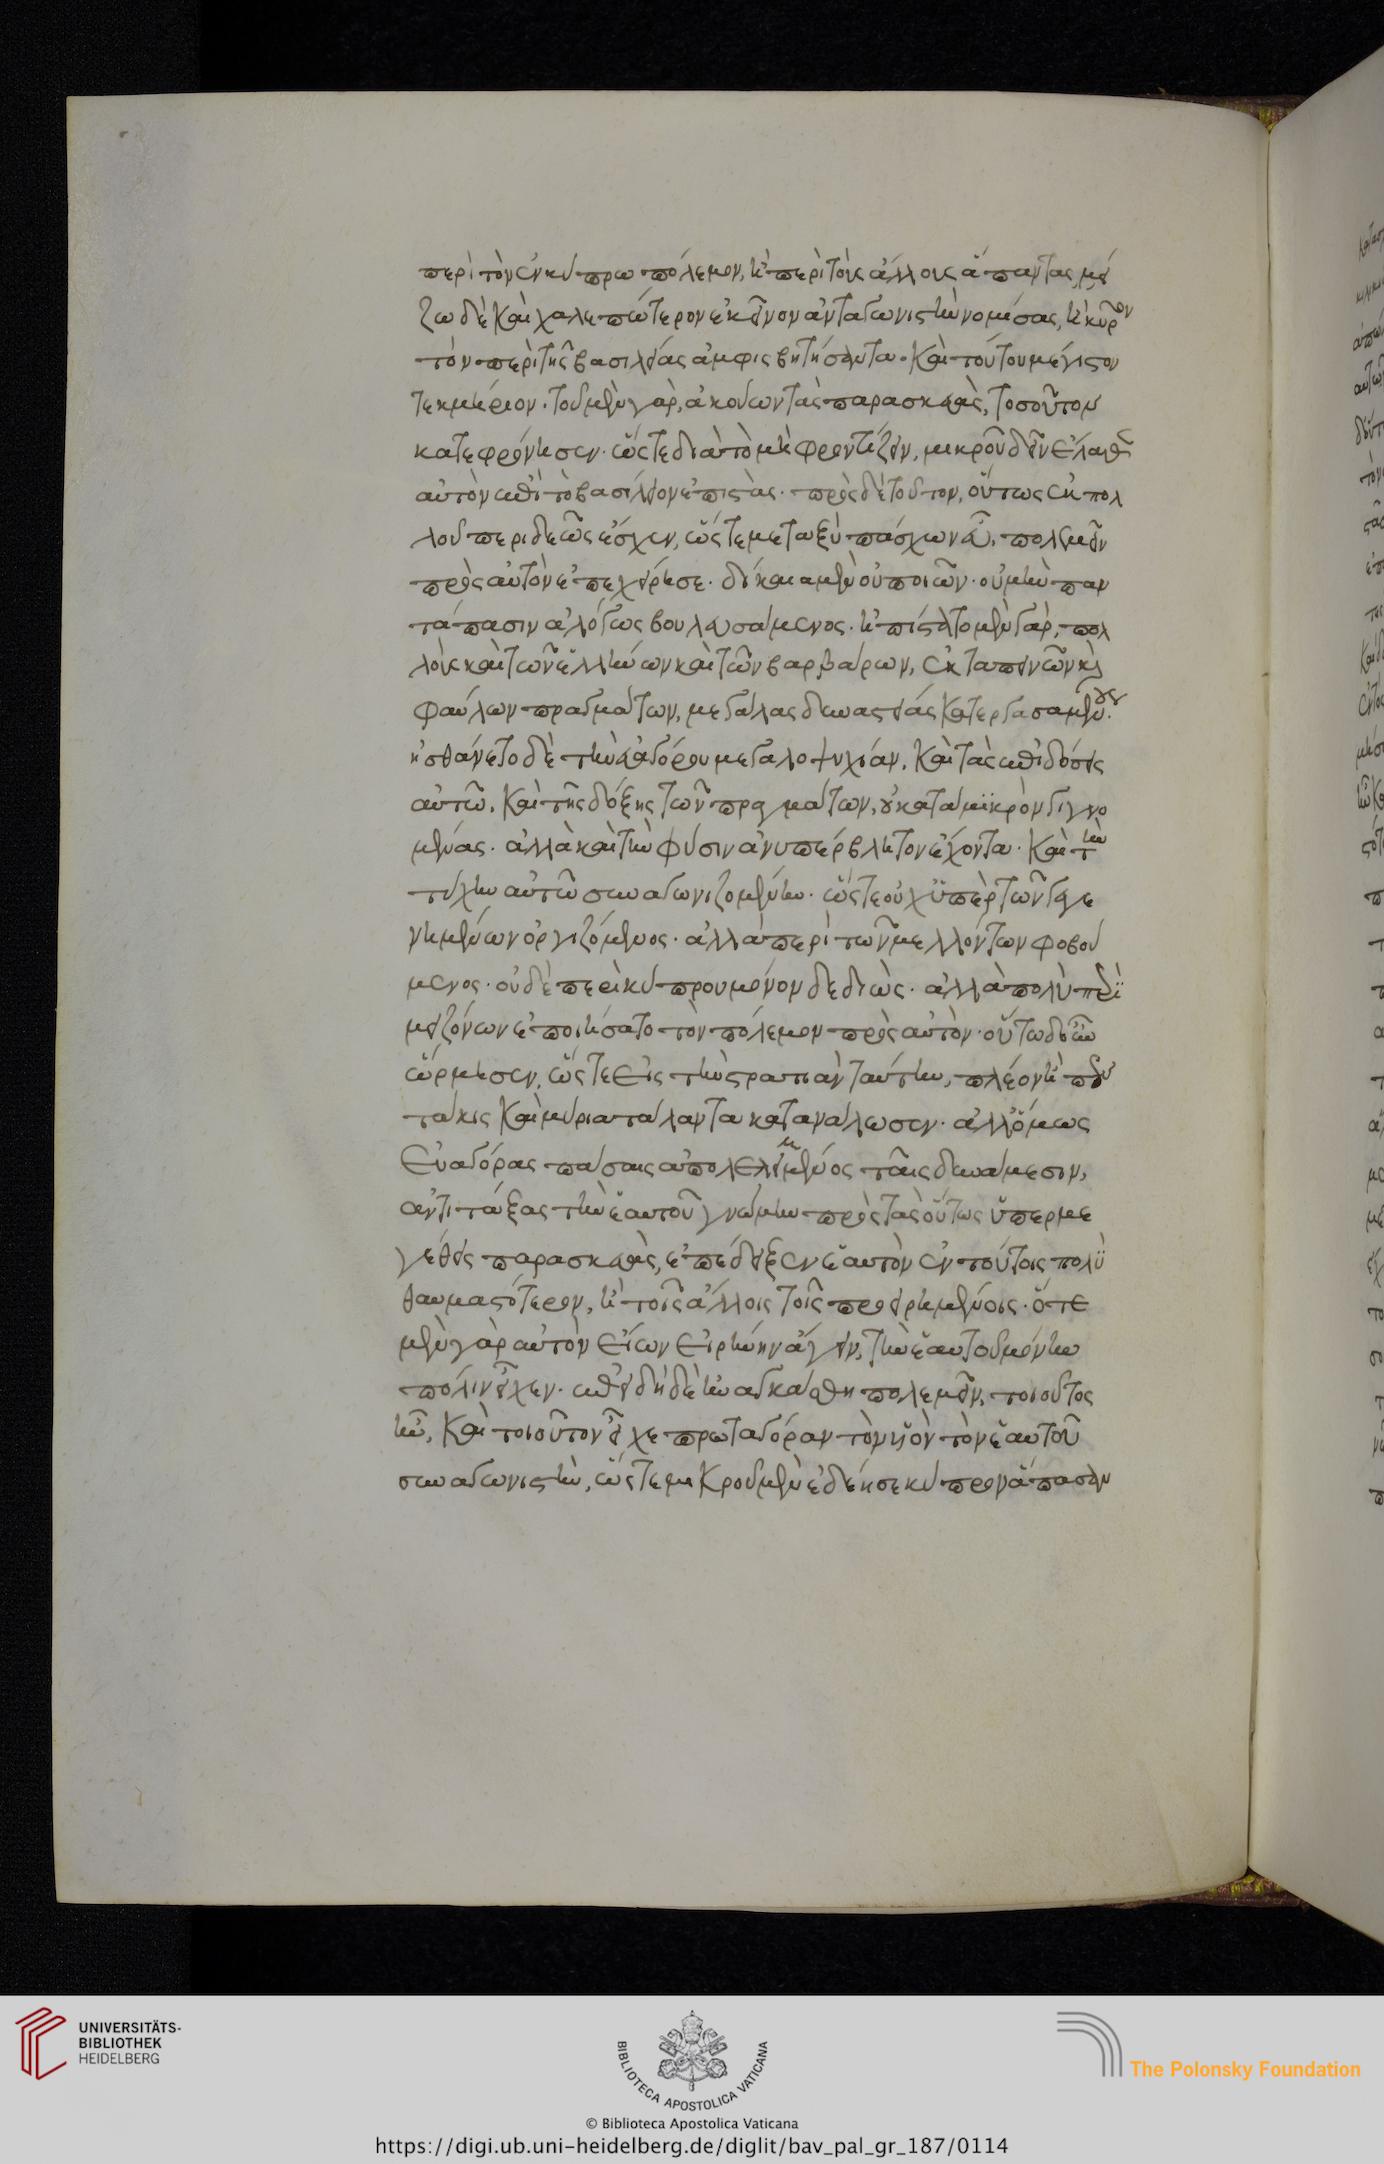 περὶ τὸν ἐν κύπρω πόλεμον, ἢ περὶ τοὺς ἄλλους ἅπαντας, μεί
ζω δὲ καὶ χαλεπώτερον ἐκεῖνον ἀνταγωνιστὴν νομίσας, ἢ κῦρον
τὸν περὶ τῆς βασιλείας ἀμφισβητήσαντα. καὶ τούτου μέγιστον
τεκμήριον. τοῦ μὲν γὰρ, ἀκούων τὰς παρασκευὰς, τοσοῦτον
κατεφρόνησεν. ὥστε διὰ τὸ μὴ φροντίζειν, μικροῦ δεῖν ἔλαθεν
αὐτὸν ἐπὶ τὸ βασίλειον ἐπιστὰς. πρὸς δὲ τοῦτον, οὕτως ἐκ πολ
λοῦ περιδεῶς ἔσχεν, ὥστε μεταξὺ πάσχων εὖ, πολεμεῖν
πρὸς αὐτὸν ἐπεχείρησε. δίκαια μὲν οὐ ποιῶν. οὐ μὴν παν
τάπασιν ἀλόγως βουλευσάμενος. ἠπίστατο μὲν γὰρ, πολ
λοὺς καὶ τῶν ἑλλήνων καὶ τῶν βαρβάρων, ἐκ ταπεινῶν καὶ
φαύλων πραγμάτων, μεγάλας δυναστείας κατεργασαμένους.
ἠσθάνετο δὲ τὴν εὐαγόρου μεγαλοψυχίαν, καὶ τὰς ἐπιδόσεις
αὐτῶ, καὶ τῆς δόξης τῶν πραγμάτων, οὐ κατὰ μϊκρὸν γιγνο
μένας. ἀλλὰ καὶ τὴν φύσιν ἀνυπέρβλητον ἔχοντα. καὶ τὴν
τύχην αὐτῶ συναγωνιζομένην. ὥστε οὐχ ὑπὲρ τῶν γεγε
νημένων ὀργιζόμενος. ἀλλὰ περὶ τῶν μελλόντων φοβού
μενος. οὐδὲ περὶ κύπρου μόνον δεδιὼς. ἀλλὰ πολὺ περὶ
μειζόνων ἐποιήσατο τὸν πόλεμον πρὸς αὐτὸν. οὕτω δ' οὖν
ὥρμησεν, ὥστε εἰς τὴν στρατιὰν ταύτην, πλέον ἢ πεν
τάκις καὶ μύρια τάλαντα κατανάλωσεν. ἀλλ' ὅμως
Εὐαγόρας πάσαις ἀπολελειμμένος ταῖς δυνάμεσιν,
ἀντιτάξας τὴν ἑαυτοῦ γνώμην πρὸς τὰς οὕτως ὑπερμε
γέθεις παρασκευὰς, ἐπέδειξεν ἑαυτὸν ἐν τούτοις πολὺ
θαυμαστότερον, ἢ τοῖς ἄλλοις τοῖς προειρημένοις. ὅτε
μὲν γὰρ αὐτὸν εἴων εἰρήνην ἄγειν, τὴν ἑαυτοῦ μόνην
πόλιν εἶχεν. ἐπειδὴ δὲ ἠναγκάσθη πολεμεῖν, τοιοῦτος
ἦν, καὶ τοιοῦτον εἶχε πρωταγόραν τὸν υἱὸν τὸν ἑαυτοῦ
συναγωνιστὴν, ὥστε μικροῦ μὲν ἐδέησε κύπρον ἅπασαν
UNIVERSITÄTS-
BIBLIOTHEK
HEIDELBERG
BIBLIOTECA APOSTOLICA VATICANA
The Polonsky Foundation
© Biblioteca Apostolica Vaticana
https://digi.ub.uni-heidelberg.de/diglit/bav_pal_gr_187/0114